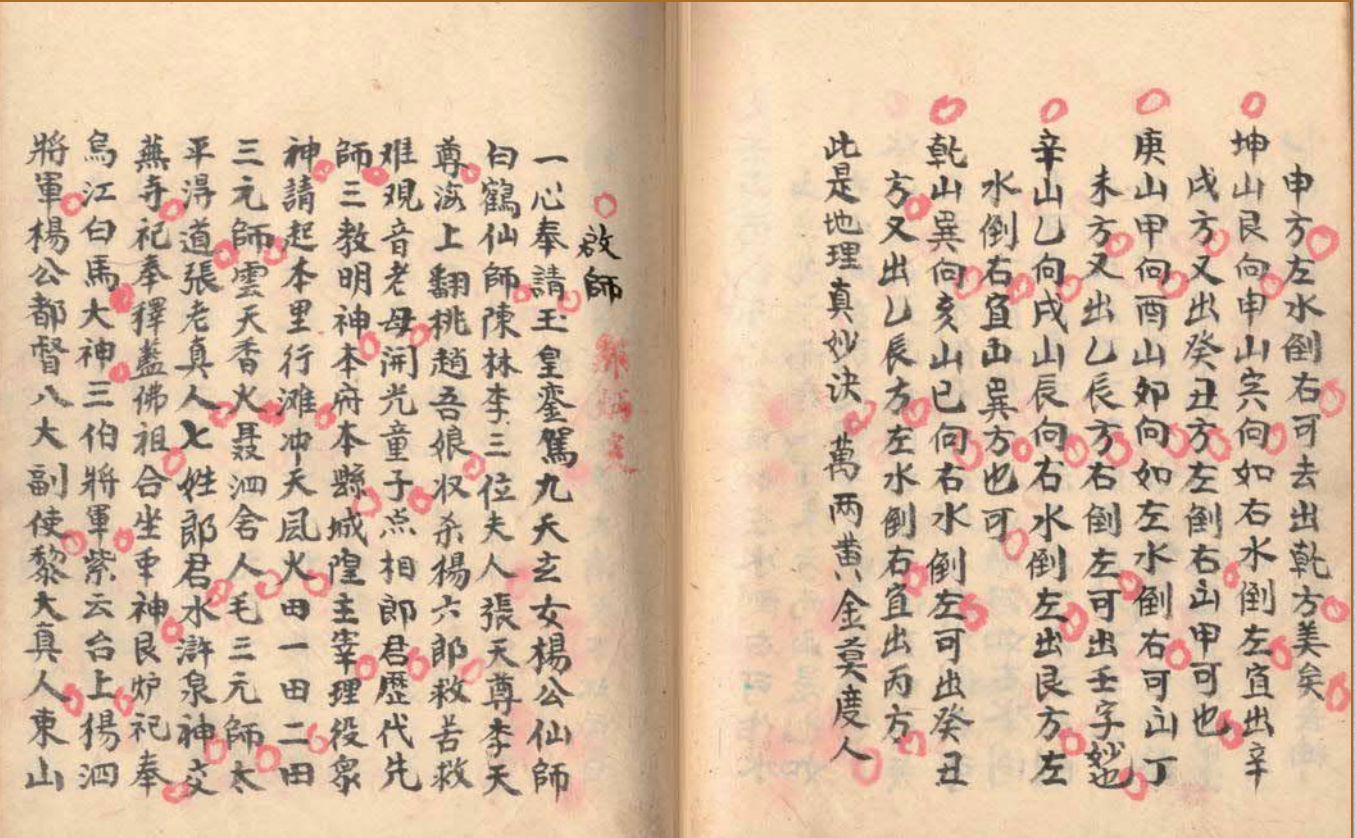 申方左水倒右可去出乾方美矣
坤山艮向申山寅向如右水倒左宜出辛
戌方又出癸丑方左倒右出甲可也
庚山甲向酉山卯向如左水倒右可出丁
未方又出乙辰方右倒左可出壬字妙也
辛山乙向戌山辰向右水倒左出艮方左
水倒右宜出巽方也可
乾山巽向亥山巳向右水倒左可出癸丑
方又出乙辰方左水倒右宜出丙方
此是地理真妙决 萬两黄金莫度人
啟師
一心奉請玉皇鑾駕九天玄女楊公仙師
白鶴仙師陳林李三位夫人張天尊李天
尊海上翻桃趙吾娘收杀楊六郎救苦救
难观音老母開光童子点相郎君歷代先
師三教明神本府本縣城隍主宰理役衆
神請起本里行滩冲天風火田一田二田
三元師雲天香火聂泗舍人毛三元師太
平得道張老真人七姓郎君水滸泉神交
蕪寺祀奉釋藍佛祖合坐重神艮炉祀奉
烏江白馬大神三伯將軍紫云台上楊泗
將軍楊公都督八大副使黎大真人東山